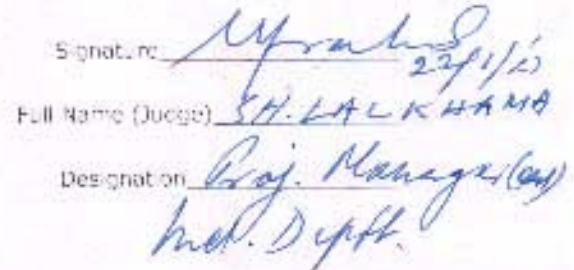 Signature
22/1/
Full Name (Judge) SH. LALKHAMA
Designation Proj. Manager
Ind. Deptt.